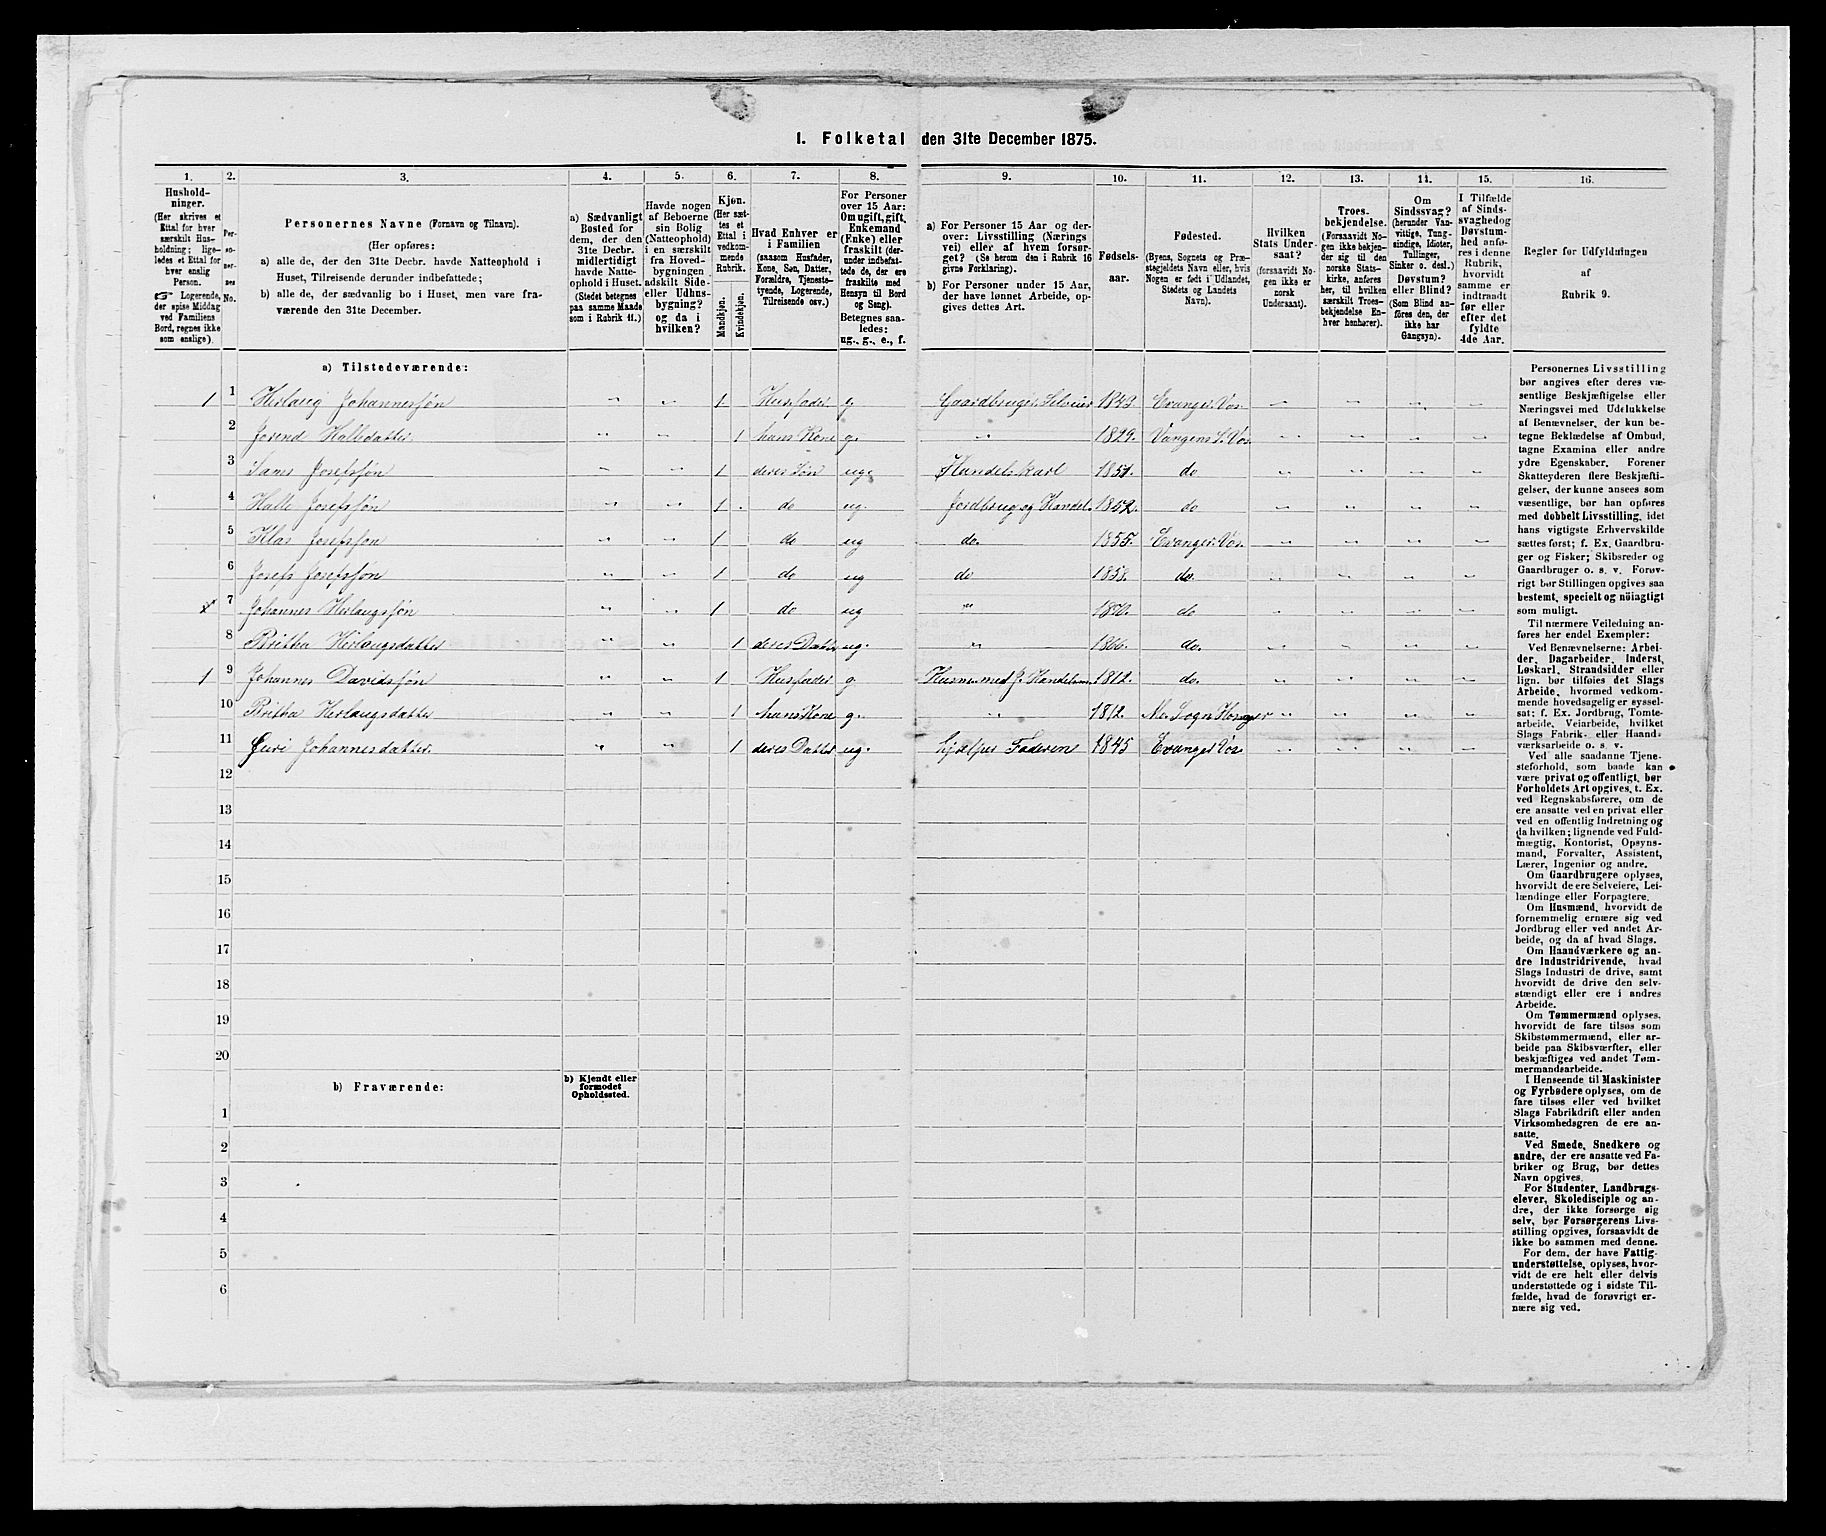 1. Folketal den 31te December 1875.
1. 2. 3. 4. 5. 6. 7. 8. 9. 10. 11. 12. 13. 14. 15. 16.
Hushold-
ninger.
(Her skrives et
Ettal for hver
særskilt Hus-
holdning; lige-
ledes et Ettal for
hver enslig
Person.
☞ Logerende,
der spise Middag
ved Familiens
Bord, regnes ikke
som enslige).
Per-
so-
ner-
nes
No.
Personernes Navne (Fornavn og Tilnavn).
(Her opføres:
a) alle de, der den 31te Decbr. havde Natteophold i
Huset, Tilreisende derunder indbefattede;
b) alle de, der sædvanlig bo i Huset, men vare fra-
værende den 31te December.
a) Sædvanligt
Bosted for
dem, der den
31te Decbr.
midlertidigt
havde Natte-
ophold i Huset.
(Stedet betegnes
paa samme Maade
som i Rubrik 11.)
Havde nogen
af Beboerne
sin Bolig
(Natteophold)
i en særskilt
fra Hoved-
bygningen
adskilt Side-
eller Udhus-
bygning?
og da i
hvilken?
Kjøn.
(Her sæt-
tes et
Ettal i
vedkom-
mende
Rubrik.
Mandkjøn.
Kvindekjøn.
Hvad Enhver er
i Familien
(saasom Husfader,
Kone, Søn, Datter,
Forældre, Tjeneste-
tyende, Logerende,
Tilreisende osv.)
For Personer
over 15 Aar:
Om ugift, gift,
Enkemand
(Enke) eller
fraskilt (der-
under indbefat-
tede de, der ere
fraskilte med
Hensyn til Bord
og Seng).
Betegnes saa-
ledes:
ug., g., e., f.
a) For Personer 15 Aar og der-
over: Livsstilling (Nærings
vei) eller af hvem forsør-
get? (Se herom den i Rubrik 16
givne Forklaring).
b) For Personer under 15 Aar,
der have lønnet Arbeide, op-
gives dettes Art.
Fødsels-
aar.
Fødested.
(Byens, Sognets og Præ-
stegjeldets Navn eller, hvis
Nogen er født i Udlandet,
Stedets og Landets
Navn).
Hvilken
Stats Under-
saat?
(forsaavidt No-
gen ikke er
norsk
Undersaat).
Troes-
bekjendelse.
(Forsaavidt No-
gen ikke bekjen-
der sig til den
norske Stats-
kirke, anføres
her, til hvilken
særskilt Troes-
bekjendelse En-
hver henhører).
Om
Sindssvag?
(herunder Van-
vittige, Tung-
sindige, Idioter,
Tullinger,
Sinker o. desl.)
Døvstum?
eller Blind?
(Som Blind an-
føres den, der
ikke har
Gangsyn).
I Tilfælde
af Sinds-
svaghed og
Døvstum-
hed anfø-
res i denne
Rubrik,
hvorvidt
samme er
indtraadt
før eller
efter det
fyldte
4de Aar.
Regler for Udfyldningen
af
Rubrik 9.
a) Tilstedeværende:
1 1 Herlaug Johannessøn " " 1 Husfader g Gaardbruger Selveier 1843 Evanger Vos " " " "
2 Jorend Halledatter " " 1 hans Kone g. " 1829. Vangens S. Vos " " " "
3 Sams Josefssøn " " 1 deres Søn ug. Handelskarl 1851. do " " " "
4 Halle Josefssøn " " 1 do ug. Jordbrug og Handel. 1852. do " " " "
5 Klas Josefssøn " " 1 do ug do. 1855. Evanger Vos. " " " "
6 Josefs Josefssøn " " 1 do ug do 1858. do. " " " "
x 7 Johannes Herlaugssøn " " 1 do ug " 1870. do " " " "
8 Britha Herlaugsdatter " " 1 deres Datter ug. " 1866. do. " " " "
1 9 Johannes Davidssøn " " 1 Husfader g Husm. med J. Handelsm. 1812. do. " " " "
10 Britha Herlaugsdatter " " 1 hans Kone g. " 1812. " " " "
11 Guri Johannesdatter. " " 1 deres Datter ug. hjælper Faderen 1845 Evanger Vos " " " "
12
13
14
15
16
17
18
19
20
b) Fraværende:
b) Kjendt eller
formodet
Opholdssted.
1
2
3
4
5
6
Personernes Livsstilling
bør angives efter deres væ-
sentlige Beskjæftigelse eller
Næringsvei med Udelukkelse
af Benævnelser, der kun be-
tegne Beklædelse af Ombud,
tagne Examina eller andre
ydre Egenskaber. Forener
Skatteyderen flere Beskjæfti-
gelser, der kunne ansees som
væsentlige, bør han opføres
med dobbelt Livsstilling, idet
hans vigtigste Erhvervskilde
sættes først; f. Ex. Gaardbru-
ger og Fisker; Skibsreder og
Gaardbruger o. s. v. Forøv-
rigt bør Stillingen opgives saa
bestemt, specielt og nöiagtigt
som muligt.
Til nærmere Veiledning an-
føres her endel Exempler:
Ved Benævnelserne: Arbei-
der, Dagarbeider, Inderst,
Løskarl, Strandsidder eller
lign. bør tilføies det Slags
Arbeide, hvormed vedkom-
mende hovedsagelig er syssel-
sat; f. Ex. Jordbrug, Tomte-
arbeide, Veiarbeide, hvilket
Slags Fabrik- eller Haand-
værksarbeide o. s. v.
Ved alle saadanne Tjene-
steforhold, som baade kan
være privat og offentligt, bør
Forholdets Art opgives, t. Ex.
ved Regnskabsførere, om de
ere ansatte ved en privat eller
ved en offentlig Indretning og
da hvilken; lignende ved Fuld-
mægtig, Kontorist, Opsyns-
mand, Forvalter, Assistent,
Lærer, Ingeniør og andre.
Om Gaardbrugere oplyses,
hvorvidt de ere Selveiere, Lei-
lændinge eller Forpagtere.
Om Husmænd, hvorvidt de
fornemmelig ernære sig ved
Jordbrug eller ved andet Ar-
beide, og da af hvad Slags.
Om Haandværkere og an-
dre Industridrivende, hvad
Slags Industri de drive, samt
hvorvidt de drive den selv-
stændigt eller ere i andres
Arbeide.
Om Tømmermænd oplyses,
hvorvidt de fare tilsøs som
Skibstømmermænd, eller ar-
beide paa Skibsværfter, eller
beskjæftiges ved andet Tøm-
mermandsarbeide.
I Henseende til Maskinister
og Fyrbødere oplyses, om de
fare tilsøs eller ved hvilket
Slags Fabrikdrift eller anden
Virksomhedsgren de ere an-
satte.
Ved Smede, Snedkere og
andre, der ere ansatte ved Fa-
briker og Brug, bør dettes
Navn opgives.
For Studenter, Landbrugs-
elever, Skoledisciple og an-
dre, der ikke forsørge sig
selv, bør Forsørgerens Livs-
stilling opgives, forsaavidt de
ikke bo sammen med denne.
For dem, der have Fattig-
understøttelse, oplyses, hvor-
vidt de ere helt eller delvis
understøttede og i sidste Til-
fælde, hvad de forøvrigt er-
nære sig ved.